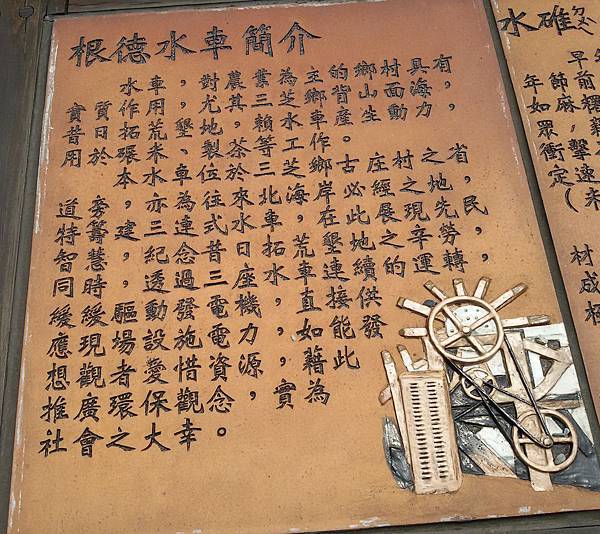 根德水車簡介
水車，對農業為主的鄉村具有
實質作用，尤其三芝鄉背山面海，
昔日拓荒墾地，賴水車生產動力，
用於碾米、製茶等工作。
本水車位於三芝鄉古庄村之省
道旁，亦為往來北海岸必經之地，
特籌建三連式水車在此展現先民
智慧，紀念昔日拓荒墾地之辛勞，
同時透過三座水車連續的運轉，
緩緩驅動發電機，直接供
應現場設施電力，如能發
想觀者愛惜資源，藉此
推廣環保觀念，實為
社會之大幸。
水碓ㄉㄨㄟˋ